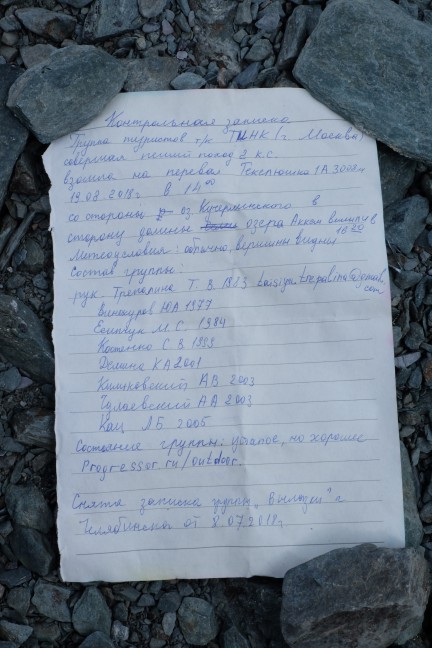 Контрольная записка
Группа туристов т/к ТЦНК (г. Москва)
совершая пеший поход 2 к.с.
взошла на перевал 1А 3008м
19.08.2018г в 14 00
со стороны оз. Кучерлинского в
сторону долины озера Аккем 16 20
Метеоусловия: облачно, вершины видны
Состав группы:
рук. Трепалина Т. В. 1983
Винокуров НА 1977
М С. 1984
Костенко С. В 1983
Демина КА 2001
Климовский АВ 2003
АА 2003
Кац ЛБ 2005
Состояние группы: усталое, но хорошее
Progressor.ru/outdoor.
Снята записка группы г.
Челябинска от 8.07.2018г